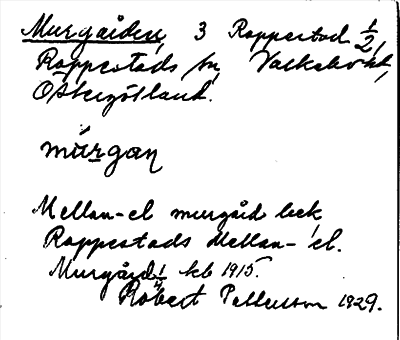 Murgården, 3 Rappestad 1/2,
Rappestads sn, Valkebo hd,
Östergötland.
mùrgan
Mellan- el murgård beck
Rappestads Mellan- el.
Murgård 1/4 kb 1915.
Robert Pettersson 1929.